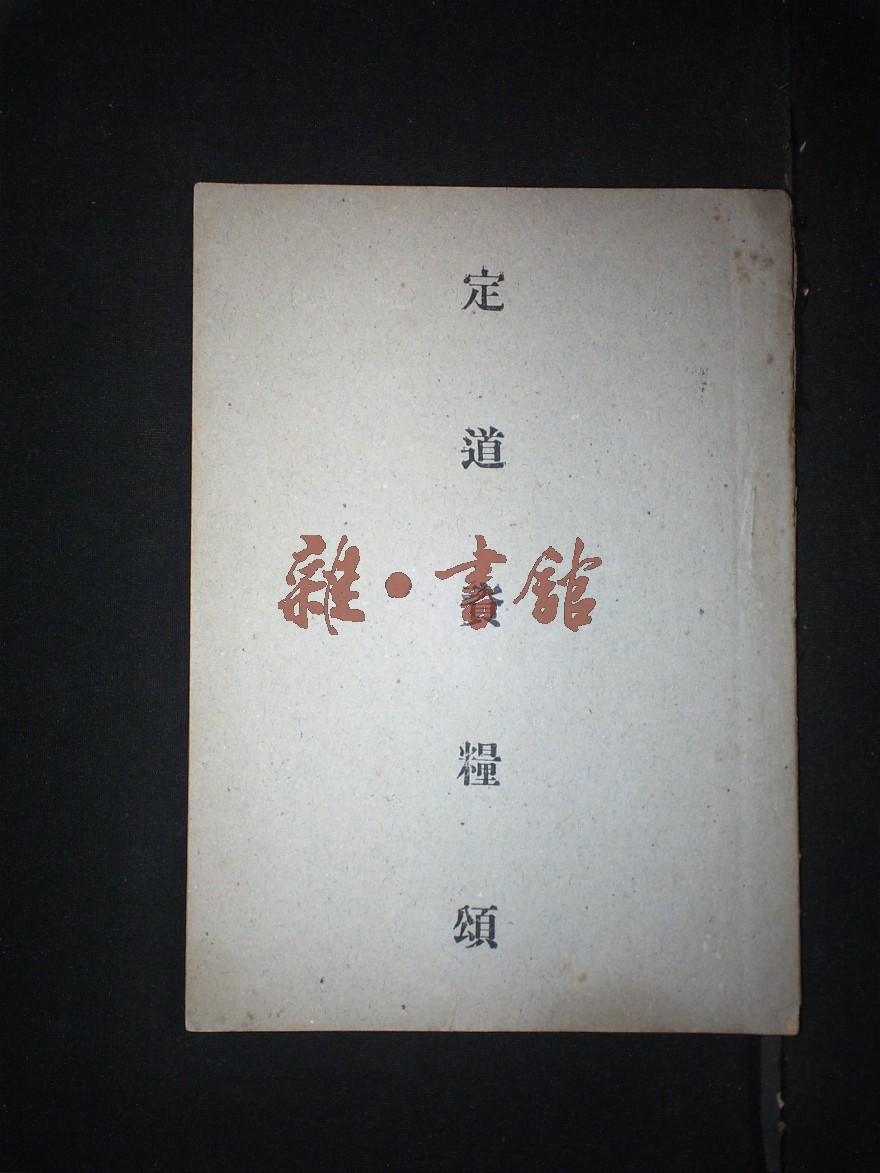 定道資糧頌
雜·書館